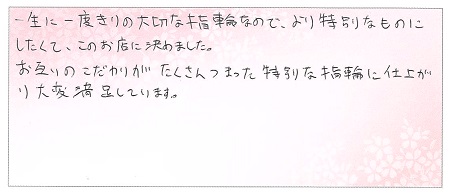 一生に一度きりの大切な指輪なので、より特別なものに
したくて、このお店に決めました。
お互りのこだわりがたくさんつまった特別な指輪に仕上がり
り大変満足しています。